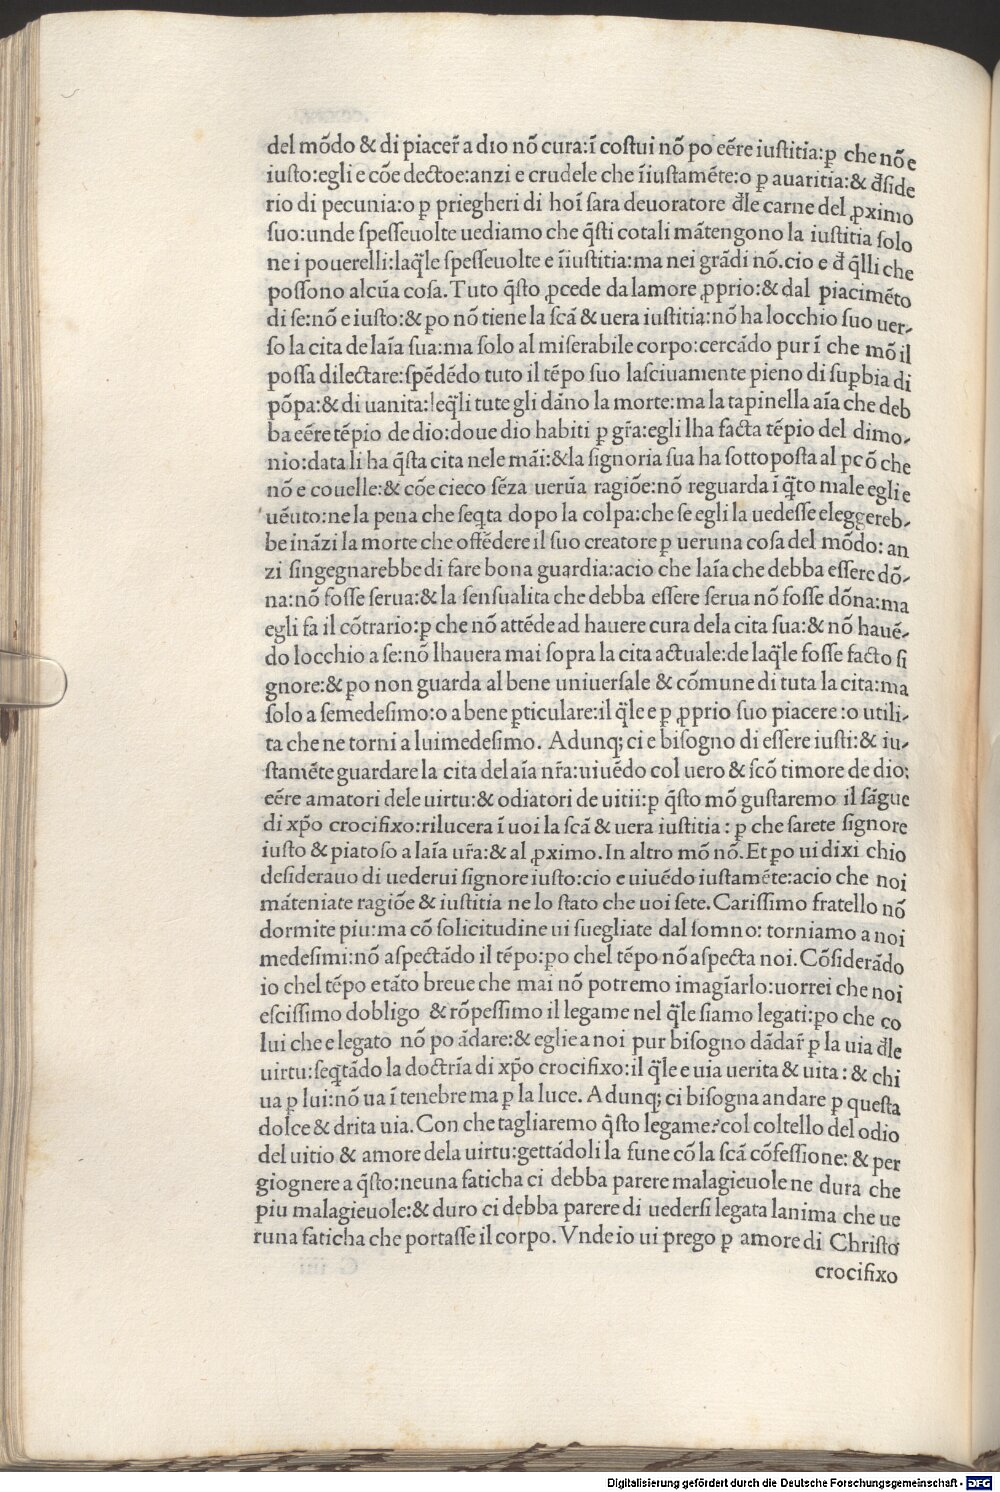 del mõdo & di piacer̃ a dio nõ cura:ĩ coſtui nõ po eẽre iuſtitia:ꝑ che nõ e
iuſto:egli e cõe dectoe:anzi e crudele che ĩiuſtamẽte:o ꝑ auaritia:& đſide
rio di pecunia:o ꝑ priegheri di hoĩ ſara deuoratore đle carne del ꝓximo
ſuo:unde ſpeſſeuolte uediamo che q̃ſti cotali mãtengono la iuſtitia ſolo
ne i pouerelli:laq̃le ſpeſſeuolte e ĩiuſtitia:ma nei grãdi nõ.cio e đ q̃lli che
poſſono alcũa coſa.Tuto q̃ſto ꝓcede da lamore ꝓprio:& dal piacimẽto
di ſe:nõ e iuſto:& ꝑo nõ tiene la ſcã & uera iuſtitia:nõ ha locchio ſuo uer-
ſo la cita de laĩa ſua:ma ſolo al miſerabile corpo:cercãdo pur ĩ che mõ il
poſſa dilectare:ſpẽdẽdo tuto il tẽpo ſuo laſciuamente pieno di ſuꝑbia di
põpa:& di uanita:leq̃li tute gli dãno la morte:ma la tapinella aĩa che deb
ba eẽre tẽpio de dio:doue dio habiti ꝑ gr̃a:egli lha facta tẽpio del dimo-
nio:data li ha q̃ſta cita nele mãi:&la ſignoria ſua ha ſottopoſta al pcõ che
nõ e couelle:& cõe cieco ſẽza uerũa ragiõe:nõ reguarda ĩ q̃to male egli e
uẽuto:ne la pena che ſeq̃ta dopo la colpa:che ſe egli la uedeſſe eleggereb-
be inãzi la morte che offẽdere il ſuo creatore ꝑ ueruna coſa del mõdo: an
zi ſingegnarebbe di fare bona guardia:acio che laĩa che debba eſſere dõ-
na:nõ foſſe ſerua:& la ſenſualita che debba eſſere ſerua nõ foſſe dõna:ma
egli fa il cõtrario:ꝑ che nõ attẽde ad hauere cura dela cita ſua:& nõ hauẽ-
do locchio a ſe:nõ lhauera mai ſopra la cita actuale:de laq̃le foſſe facto ſi
gnore:& ꝑo non guarda al bene uniuerſale & cõmune di tuta la cita:ma
ſolo a ſemedeſimo:o a bene ꝑticulare:il q̃le e ꝑ ꝓprio ſuo piacere:o utili-
ta che ne torni a luimedeſimo. Adunq; ci e biſogno di eſſere iuſti:& iu-
ſtamẽte guardare la cita del aĩa nr̃a:uiuẽdo col uero & ſcõ timore de dio:
eẽre amatori dele uirtu:& odiatori de uitii:ꝑ q̃ſto mõ guſtaremo il ſãgue
di xp̃o crocifixo:rilucera ĩ uoi la ſcã & uera iuſtitia : ꝑ che ſarete ſignore
iuſto & piatoſo a laĩa ur̃a:& al ꝓximo.In altro mõ nõ. Et ꝑo ui dixi chio
deſiderauo di uederui ſignore iuſto:cio e uiuẽdo iuſtamẽte:acio che noi
mãteniate ragiõe & iuſtitia ne lo ſtato che uoi ſete.Cariſſimo fratello nõ
dormite piu:ma cõ ſolicitudine ui ſuegliate dal ſomno: torniamo a noi
medeſimi:nõ aſpectãdo il tẽpo:po chel tẽpo nõ aſpecta noi. Cõſiderãdo
io chel tẽpo e tãto breue che mai nõ potremo imagĩarlo:uorrei che noi
eſciſſimo dobligo & rõpeſſimo il legame nel q̃le ſiamo legati:ꝑo che co
lui che e legato nõ po ãdare:& eglie a noi pur biſogno dãdar̃ ꝑ la uia đle
uirtu:ſeq̃tãdo la doctrĩa di xp̃o crocifixo:il q̃le e uia uerita & uita : & chi
ua ꝑ lui:nõ ua ĩ tenebre ma ꝑ la luce. Adunq; ci biſogna andare ꝑ queſta
dolce & drita uia. Con che tagliaremo q̃ſto legame?col coltello del odio
del uitio & amore dela uirtu:gettãdoli la fune cõ la ſcã cõfeſſione: & per
giognere a q̃ſto:neuna faticha ci debba parere malagieuole ne dura che
piu malagieuole:& duro ci debba parere di uederſi legata lanima che ue
runa faticha che portaſſe il corpo. Vnde io ui prego ꝑ amore di Chriſto
crocifixo
Digitalisierung gefördert durch die Deutsche Forschungsgemeinschaft - DFG